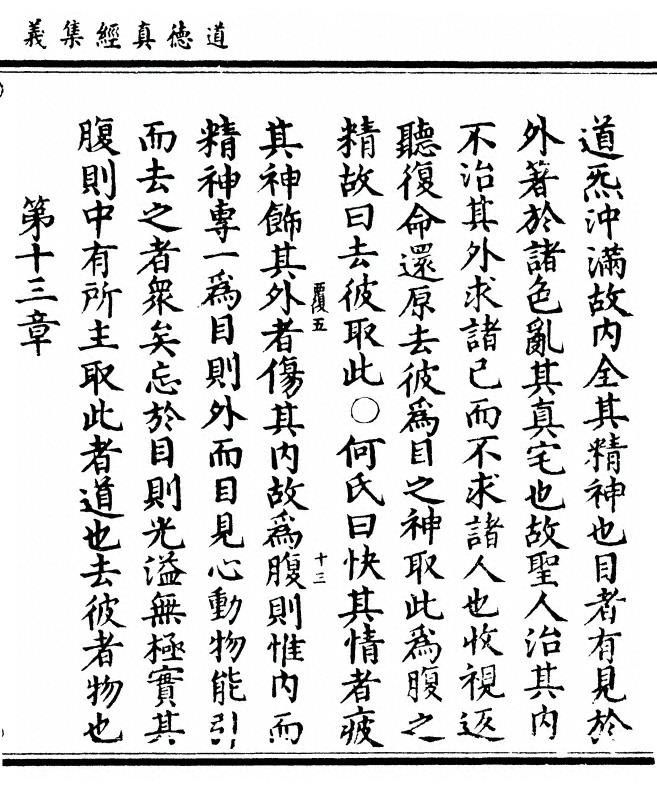 道德真經集義
道炁沖滿故内全其精神也目者有見於
外著於諸色亂其真宅也故聖人治其内
不治其外求諸己而不求諸人也收視返
聽復命還原去彼爲目之神取此爲腹之
精故曰去彼取此○何氏曰快其情者疲
覆五
十三
其神飾其外者傷其内故爲腹則惟内而
精神專一爲目則外而目見心動物能引
而去之者衆矣忘於目則光溢無極實其
腹則中有所主取此者道也去彼者物也
第十三章